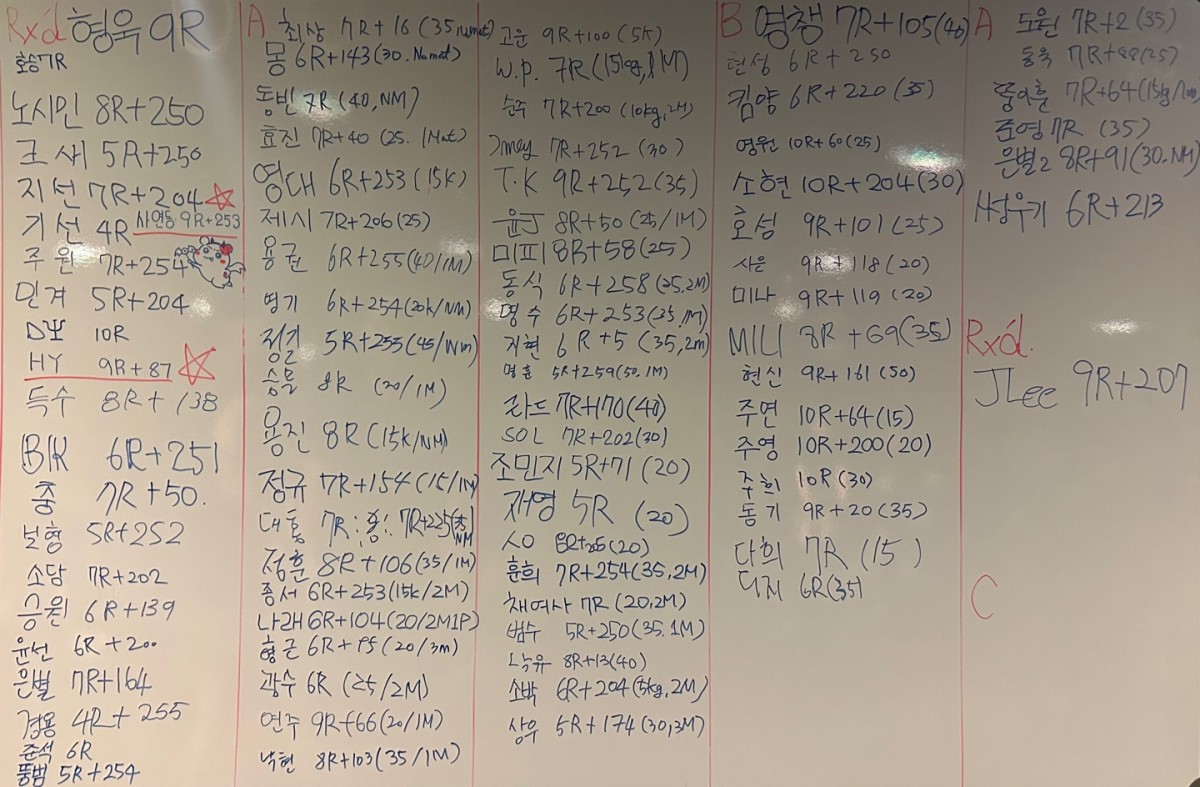 Rx'd 형욱 9R
호승 7R
노시민 8R+250
코새 5R+250
지선 7R+204
기선 4R 사연동 9R+253
주원 7R+254
민겨 5R+204
D모 10R
HY 9R+87
득수 8R+138
BK 6R+251
중 7R+50.
보형 5R+252
소담 7R+202
승원 6R+139
윤선 6R+200
은별 7R+164
경용 4R+255
준석 6R
뚱범 5R+254
A 최상 7R+16 (35,numat)
몽 6R+143(30.Nomat)
동빈 7R (40,NM)
효진 7R+40 (25. 1Mat)
영대 6R+253 (15k)
제시 7R+206(25)
용권 6R+255(40/1M)
명기 6R+254(20k/NM)
정길 5R+255(45/Nm)
승물 8R (20/1M)
용진 8R (15k/NM)
정규 7R+154(15/1M)
대홍 7R 7R+225
정훈 8R+106(35/1M)
종서 6R+253(15k/2M)
나래 6R+104(20/2M1P)
형근 6R+95 (20/3m)
광수 6R (25/2M)
연주 9R+66(20/1M)
낙현 8R+103(35/1M)
고운 9R+100 (5K)
W.P. 7R (15kg, 1M)
순주 7R+200 (10kg, 2매)
Jmay 7R+252 (30)
T.K 9R+252(35)
윤J 8R+50 (25/1M)
미피 8R+58(25)
동식 6R+258(35.2M)
명수 6R+253(35.1M)
지현 6R+5 (35,2m)
명훈 5R+259(50.1M)
라드 7R+170(40)
SOL 7R+202(30)
조민지 5R+71 (20)
재영 5R (20)
시O (20)
훈희 7R+254(35,2M)
채여사 7R (20,2M)
범수 5R+250(35.1M)
노낙유 8R+13(40)
소박 6R+204(15kg,2M)
상우 5R+174 (30,3M)
B 영챙 7R+105(40)
현성 6R+250
킴양 6R+220 (35)
영원 10R+60(25)
소현 10R+204(30)
호성 9R+101 (25)
사은 9R+118 (20)
미나 9R+119 (20)
MILI 8R+69(35)
현신 9R+161 (50)
주연 10R+64(15)
주영 10R+200(20)
주희 10R(30)
동기 9R+20(35)
다희 7R (15)
디지 6R(35)
A 도원 7R+2 (35)
동욱 7R+88(25)
7R+64(15kg/
준영 7R (35)
은별2 8R+91(30.NM)
서성우기 6R+213
Rx'd.
JLee 9R+207
C